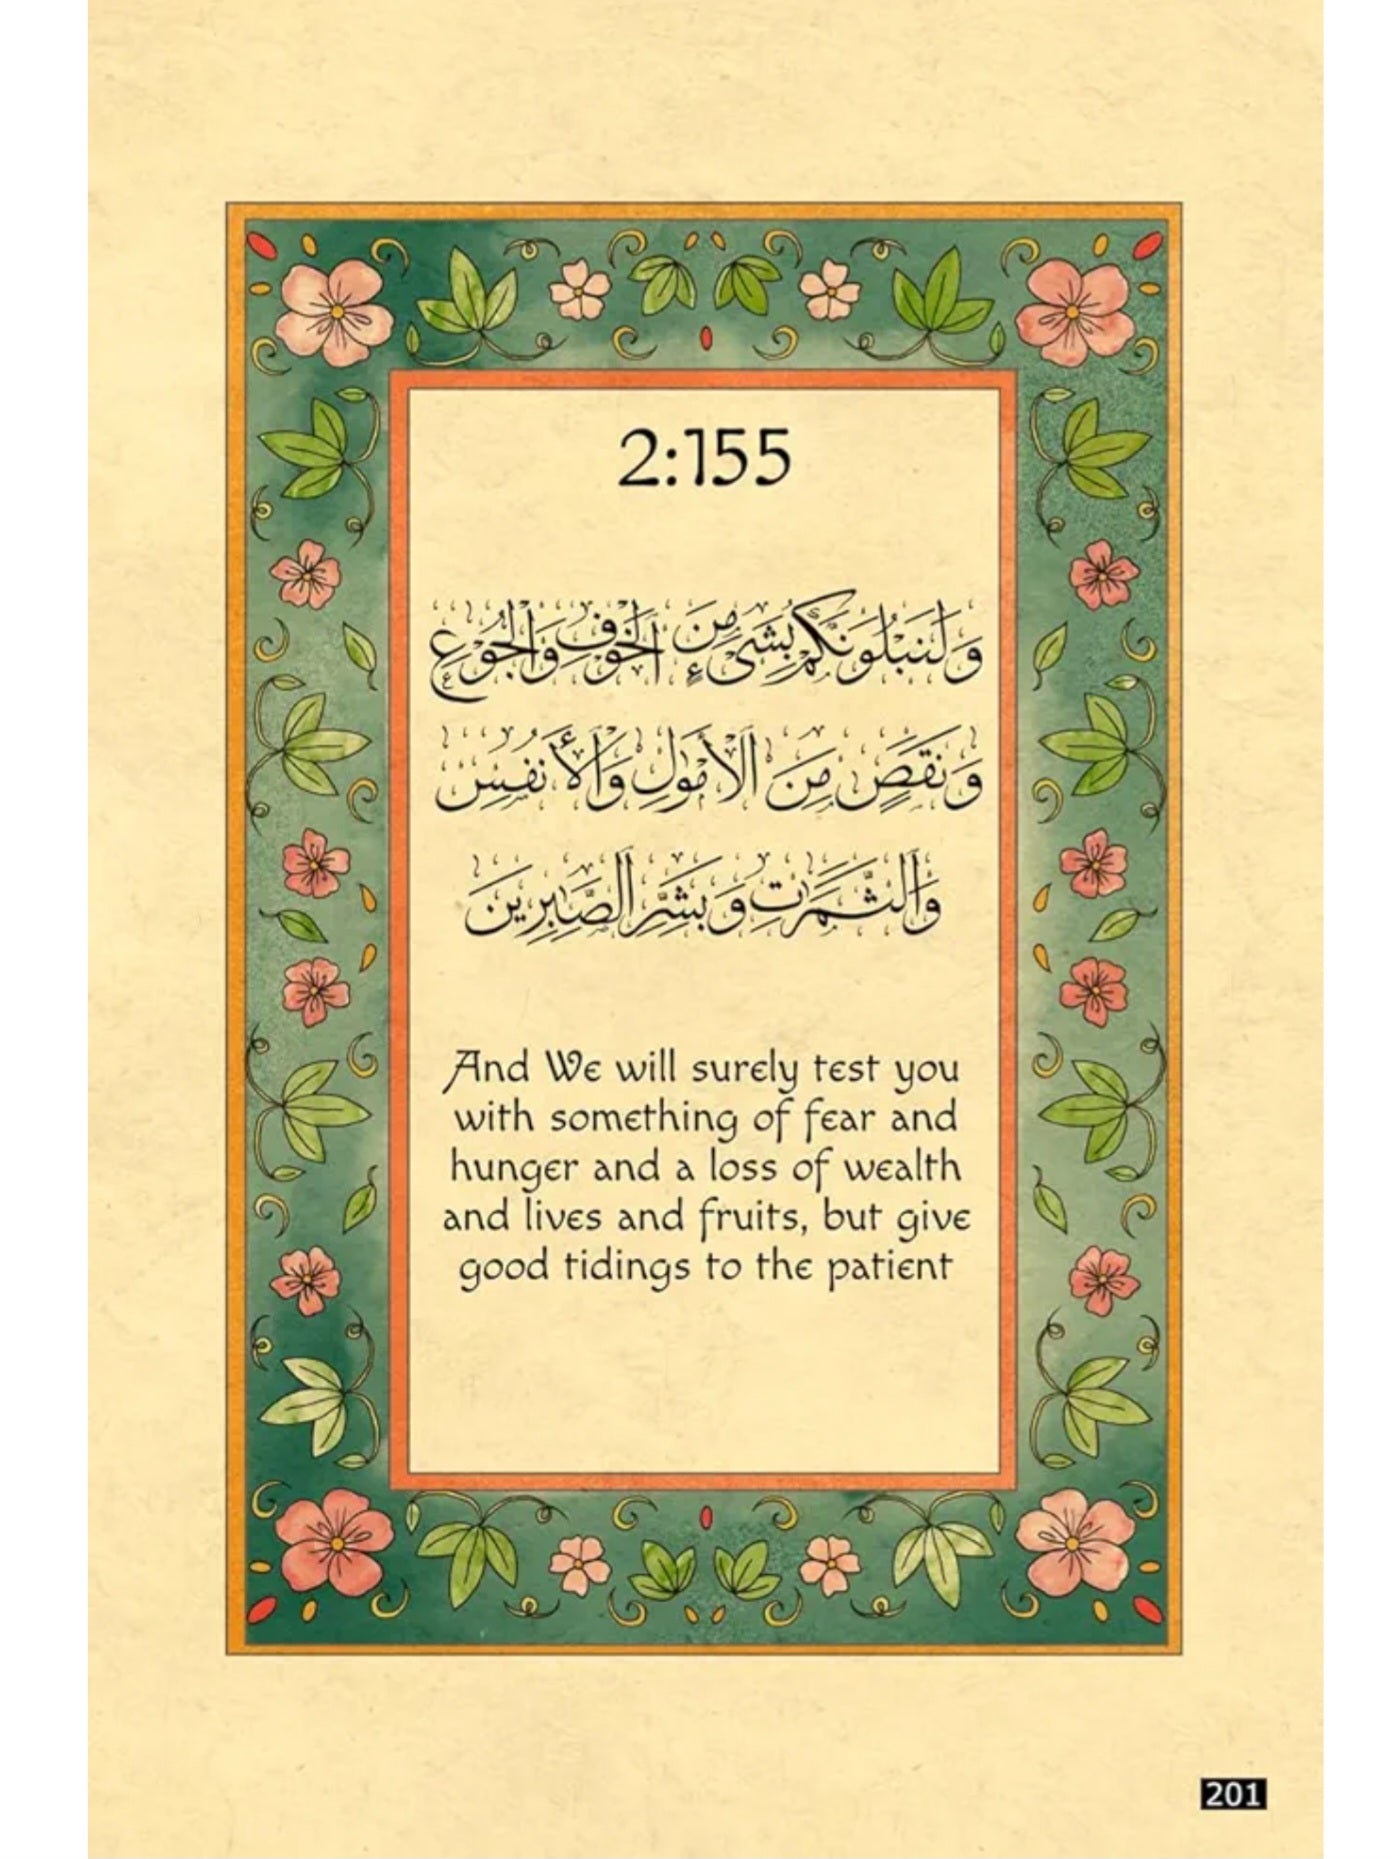 2:155
وَلَنَبْلُوَنَّكُم بِشَىْءٍ مِّنَ ٱلْخَوْفِ وَٱلْجُوعِ
وَنَقْصٍ مِّنَ ٱلْأَمْوَٰلِ وَٱلْأَنفُسِ
وَٱلثَّمَرَٰتِ وَبَشِّرِ ٱلصَّـٰبِرِينَ
And We will surely test you
with something of fear and
hunger and a loss of wealth
and lives and fruits, but give
good tidings to the patient
201